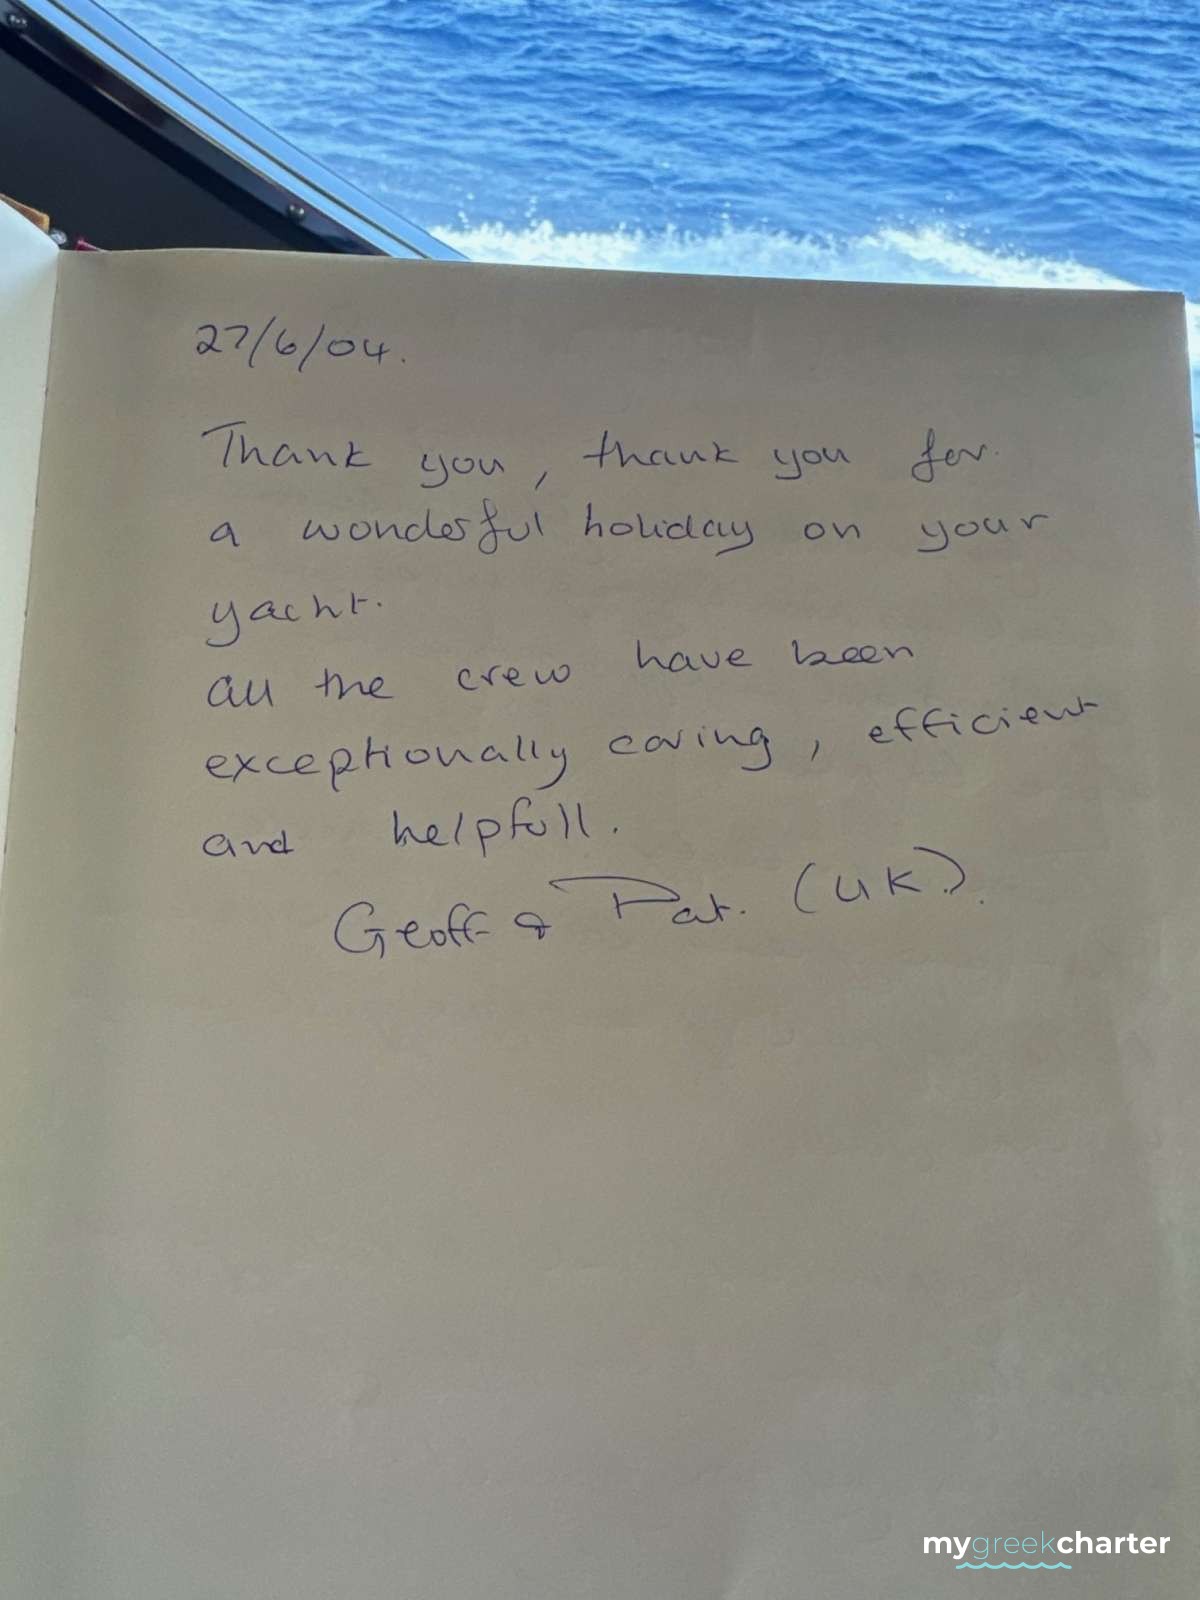 27/6/04.
Thank you, thank you for
a wonderful holiday on your
yacht.
all the crew have been
exceptionally caring, efficient
and helpfull.
Geoff & Pat. (UK).
mygreekcharter